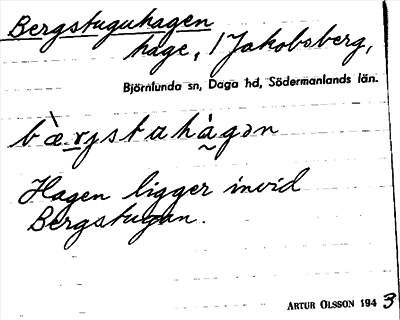 Bergstuguhagen
hage, i Jakobsberg,
Björnlunda sn, Daga hd, Södermanlands län.
bæ̀rjstahågən
Hagen ligger invid
Bergstugan.
ARTUR OLSSON 1943